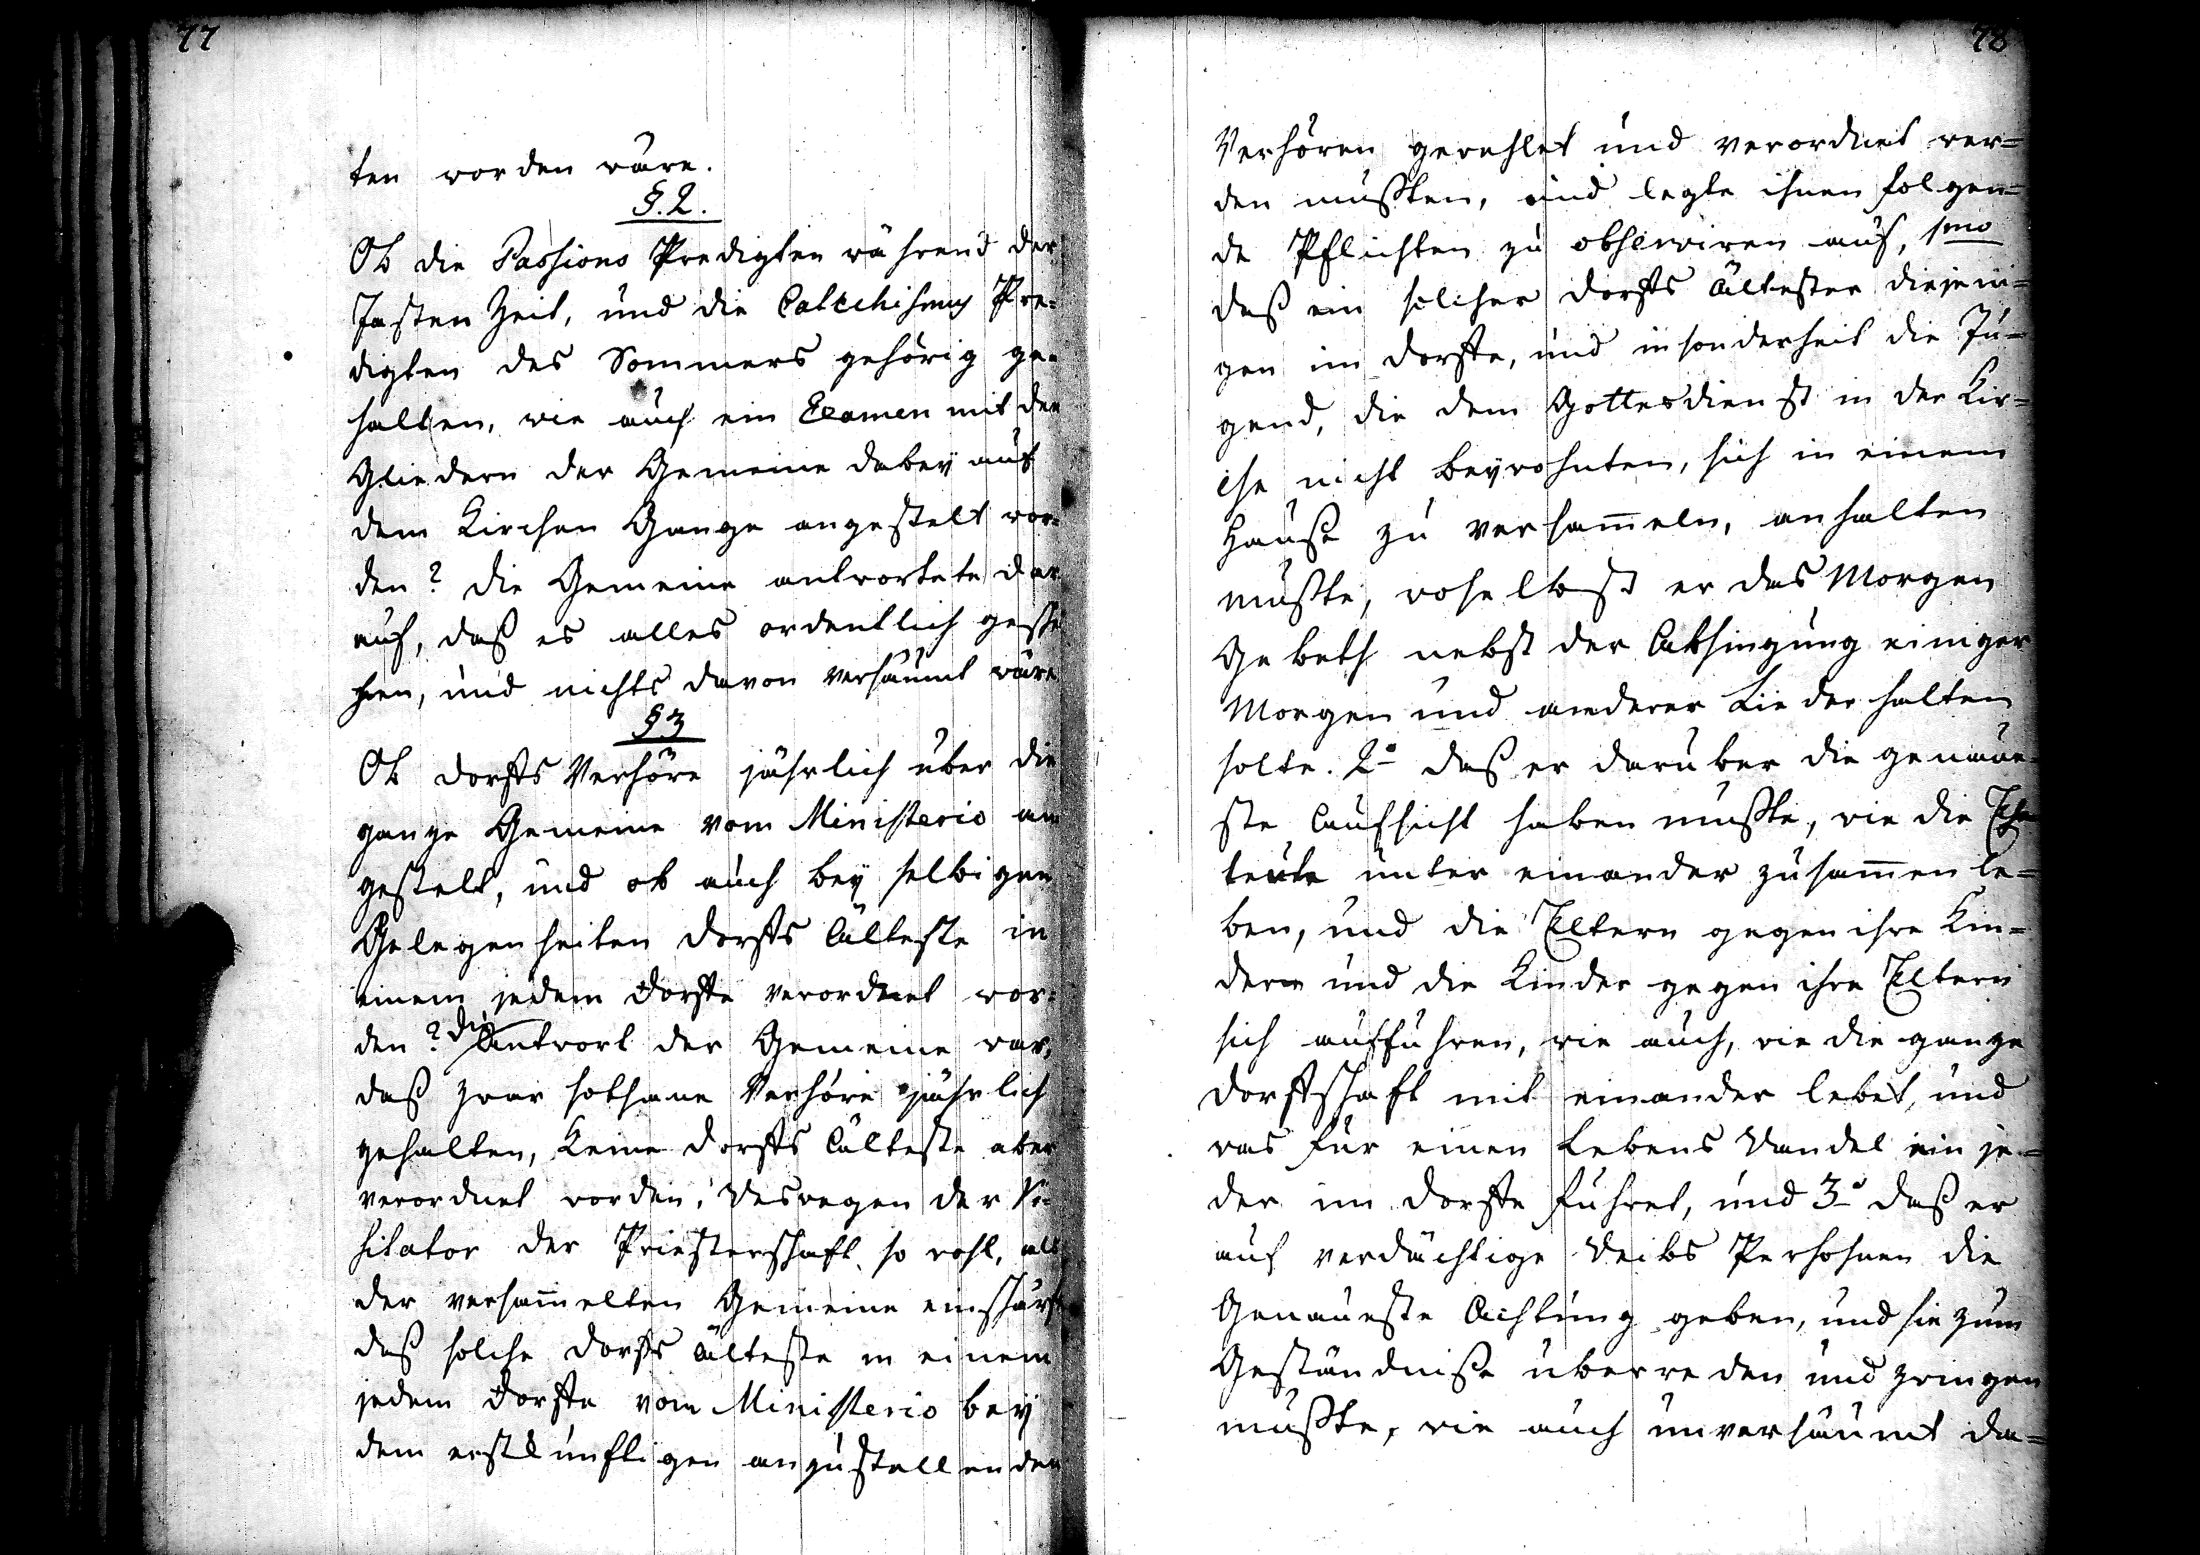 77
ten worden wäre.
§. 2.
Ob die Passions Predigten während der
Fasten Zeit, und die Catechismus Pre=
digten des Sommers gehörig ge=
halten, wie auch ein Examen mit den
Gliedern der Gemeine dabey auf
dem Kirchen Gange angestelt wor=
den? die Gemeine antwortete dar
auf, daß es alles ordentlich gesche
hen, und nichts davon versäumt wäre
§ 3
Ob dorffs Verhöre jährlich über die
gantze Gemeine vom Ministerio an
gestelt, und ob auch bey selbigen
Gelegenheiten dorffs Älteste in
einem jedem dorffe verordnet wor=
den? die Antwort der Gemeine war,
daß zwar sothane Verhöre jährlich
gehalten, Keine dorffs Älteste aber
verordnet worden. Deswegen der Vi=
sitator der Priesterschafft so wohl, als
der versam̄elten Gemeine einschärft
daß solche dorffs Älteste in einem
jedem dorffe vom Ministerio bey
dem erstkünftigen anzustellenden
78
Verhören gewehlet und verordnet wer=
den müßten, und legte ihnen folgen=
de Pflichten zu observiren auf, 1mo
daß ein solcher dorffs Ältester diejeni=
gen im dorffe, und insonderheit die Ju=
gend, die dem Gottesdienst in der Kir=
che nicht beywohnten, sich in einem
Hauße zu versam̄eln, anhalten
müßte, woselbst er das Morgen
Gebeth nebst der Absingung einiger
Morgen und anderer Lieder halten
solte. 2o daß er darüber die genaue=
ste Aufsicht haben müßte, wie die Ehe
leute unter einander zusam̄en le=
ben, und die Eltern gegen ihre Kin=
dern und die Kinder gegen ihre Eltern
sich aufführen, wie auch, wie die gantze
dorffschaft mit einander lebet, und
was für einen Lebens Wandel ein je=
der im dorffe führet, und 3o daß er
auf verdächtige Weibs Persohnen die
Genaueste Achtung geben, und sie zum
Geständniße überreden und zwingen
müßte, wie auch unversäumt da=